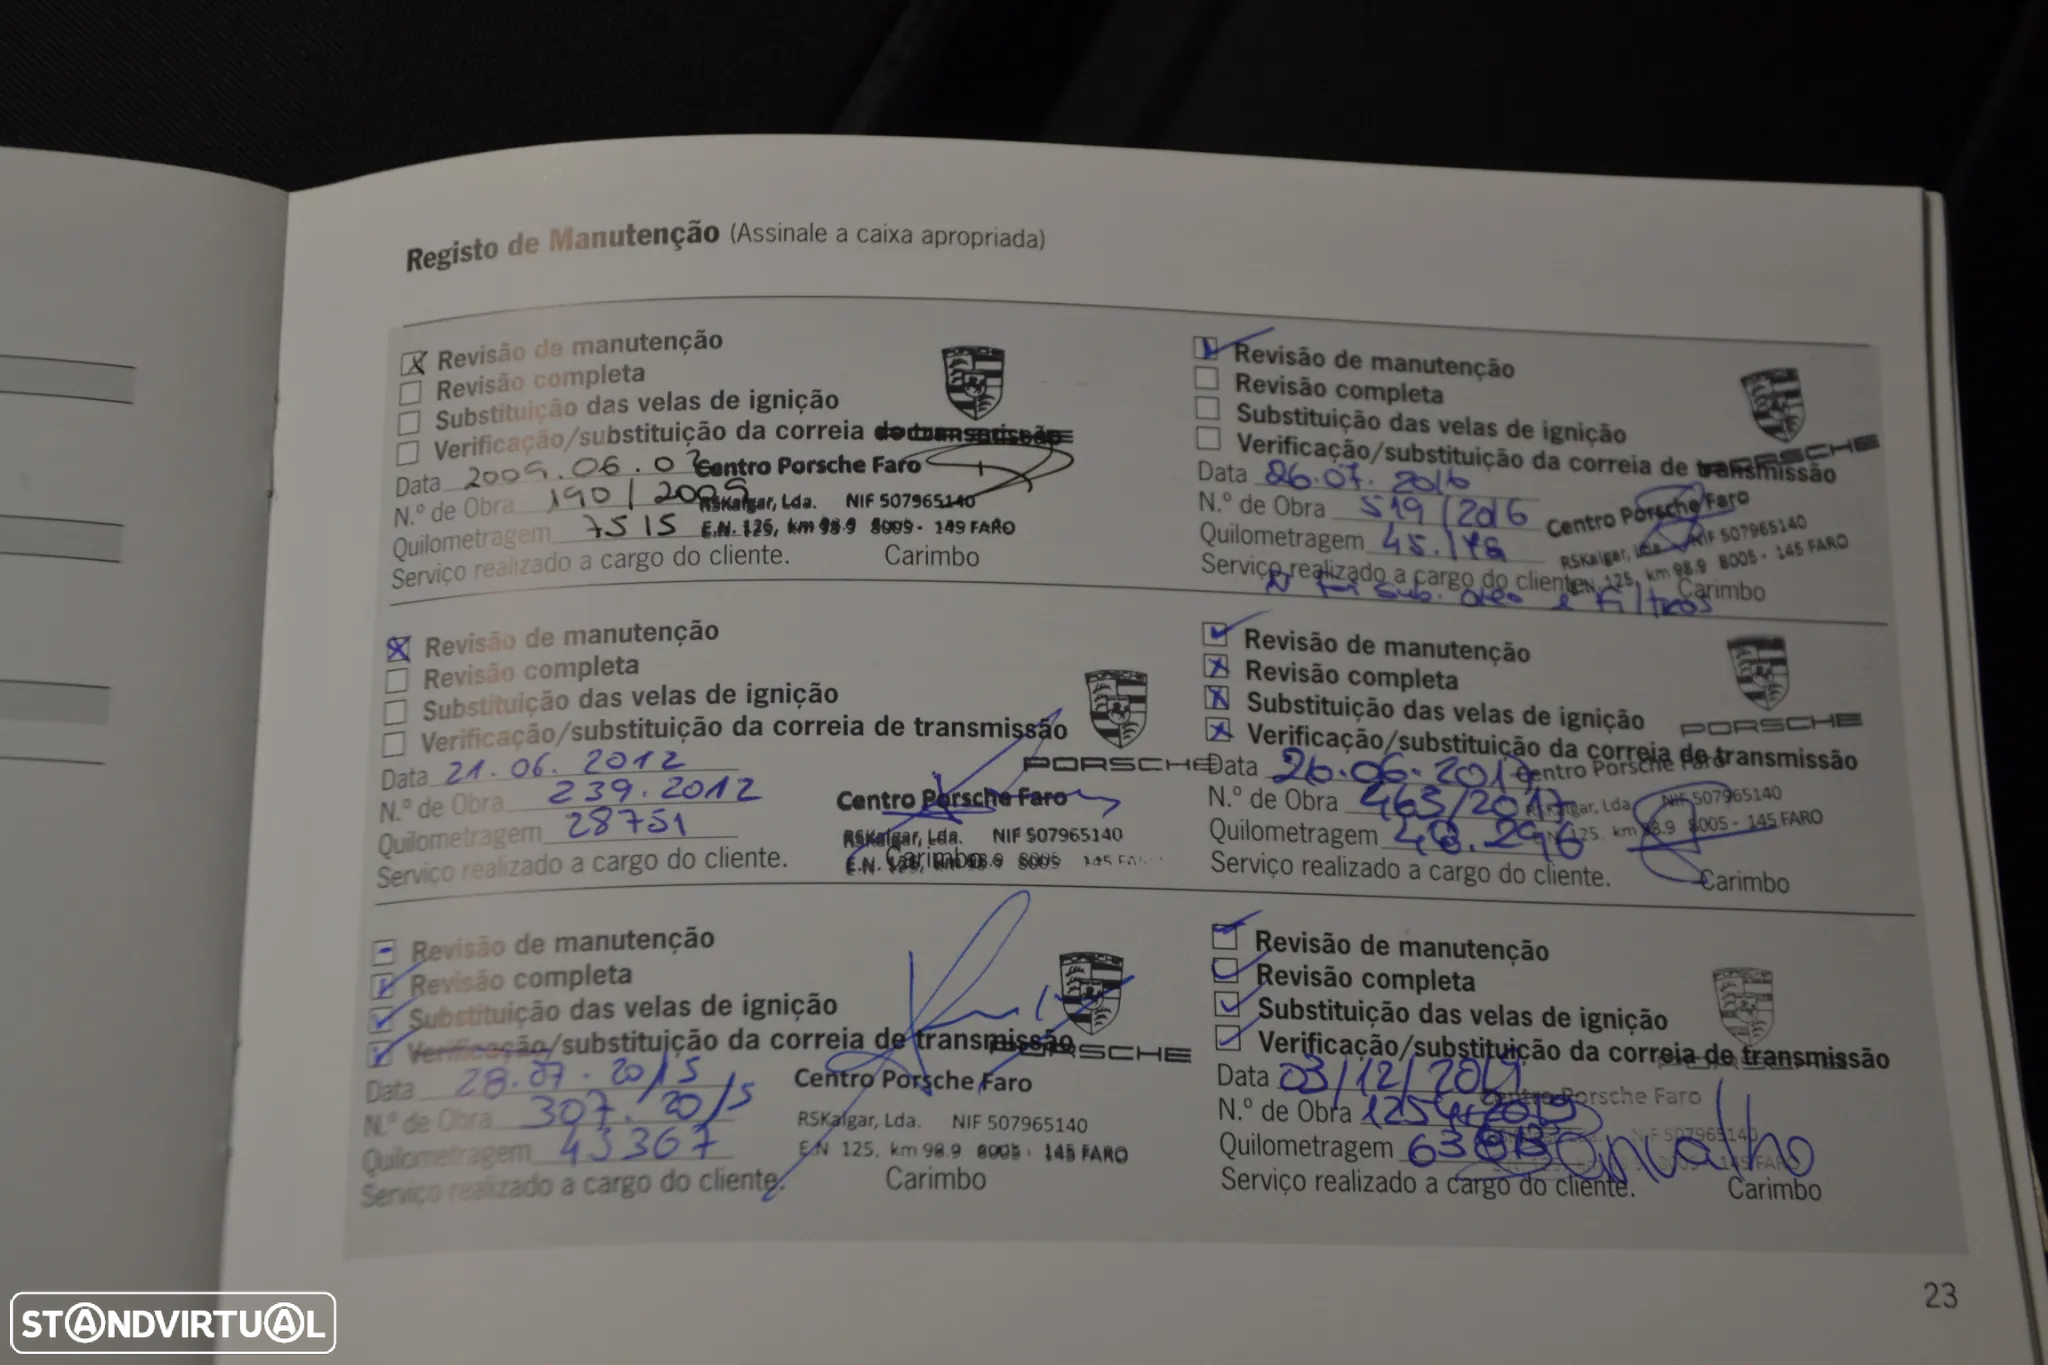 Registo de Manutenção (Assinale a caixa apropriada)
Revisão de manutenção
Revisão completa
Substituição das velas de ignição
Verificação/substituição da correia de transmissão
Data 2009.06.02
Centro Porsche Faro
N.º de Obra 190/2009
RSKalgar, Lda. NIF 507965140
Quilometragem 7515
E.N. 125, km 98.9 8005 - 145 FARO
Serviço realizado a cargo do cliente. Carimbo
Revisão de manutenção
Revisão completa
Substituição das velas de ignição
Verificação/substituição da correia de transmissão
PORSCHE
Data 21.06.2012
N.º de Obra 239.2012
Centro Porsche Faro
Quilometragem 28751
RSKalgar, Lda. NIF 507965140
Serviço realizado a cargo do cliente. Carimbo
E.N. 125, km 98.9 8005 145 FA
Revisão de manutenção
Revisão completa
Substituição das velas de ignição
Verificação/substituição da correia de transmissão
PORSCHE
Data 28.07.2015
Centro Porsche Faro
N.º de Obra 307.2015
RSKalgar, Lda. NIF 507965140
Quilometragem 43367
E.N 125, km 98.9 8005 - 145 FARO
Serviço realizado a cargo do cliente. Carimbo
Revisão de manutenção
Revisão completa
Substituição das velas de ignição
Verificação/substituição da correia de transmissão
PORSCHE
Data 26.07.2016
N.º de Obra 519/2016
Centro Porsche Faro
Quilometragem 45.
RSKalgar, Lda. NIF 507965140
E.N. 125, km 98.9 8005 - 145 FARO
Serviço realizado a cargo do cliente. Carimbo
Sub. óleo e Filtros
Revisão de manutenção
Revisão completa
Substituição das velas de ignição
PORSCHE
Verificação/substituição da correia de transmissão
Data 26.06.2017
Centro Porsche Faro
N.º de Obra 463/2017
RSKalgar, Lda. NIF 507965140
Quilometragem 48.296
E.N. 125, km 98.9 8005 - 145 FARO
Serviço realizado a cargo do cliente. Carimbo
Revisão de manutenção
Revisão completa
Substituição das velas de ignição
Verificação/substituição da correia de transmissão
PORSCHE
Data 03/12/2019
Centro Porsche Faro
N.º de Obra 1254/2019
NIF 507965140
Quilometragem
Serviço realizado a cargo do cliente. Carimbo
23
STANDVIRTUAL